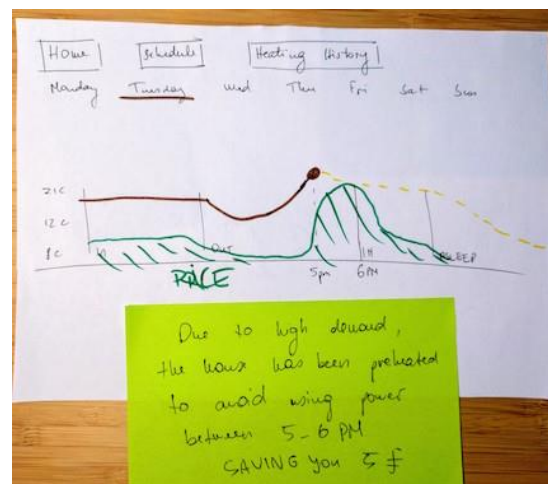 Home Schedule Heating History
Monday Tuesday Wed Thu Fri Sat Sun
21c
12c
OUT IH SLEEP
PRICE 5pm 6PM
Due to high demand,
the house has been preheated
to avoid using power
between 5-6 PM
SAVING you 5 £